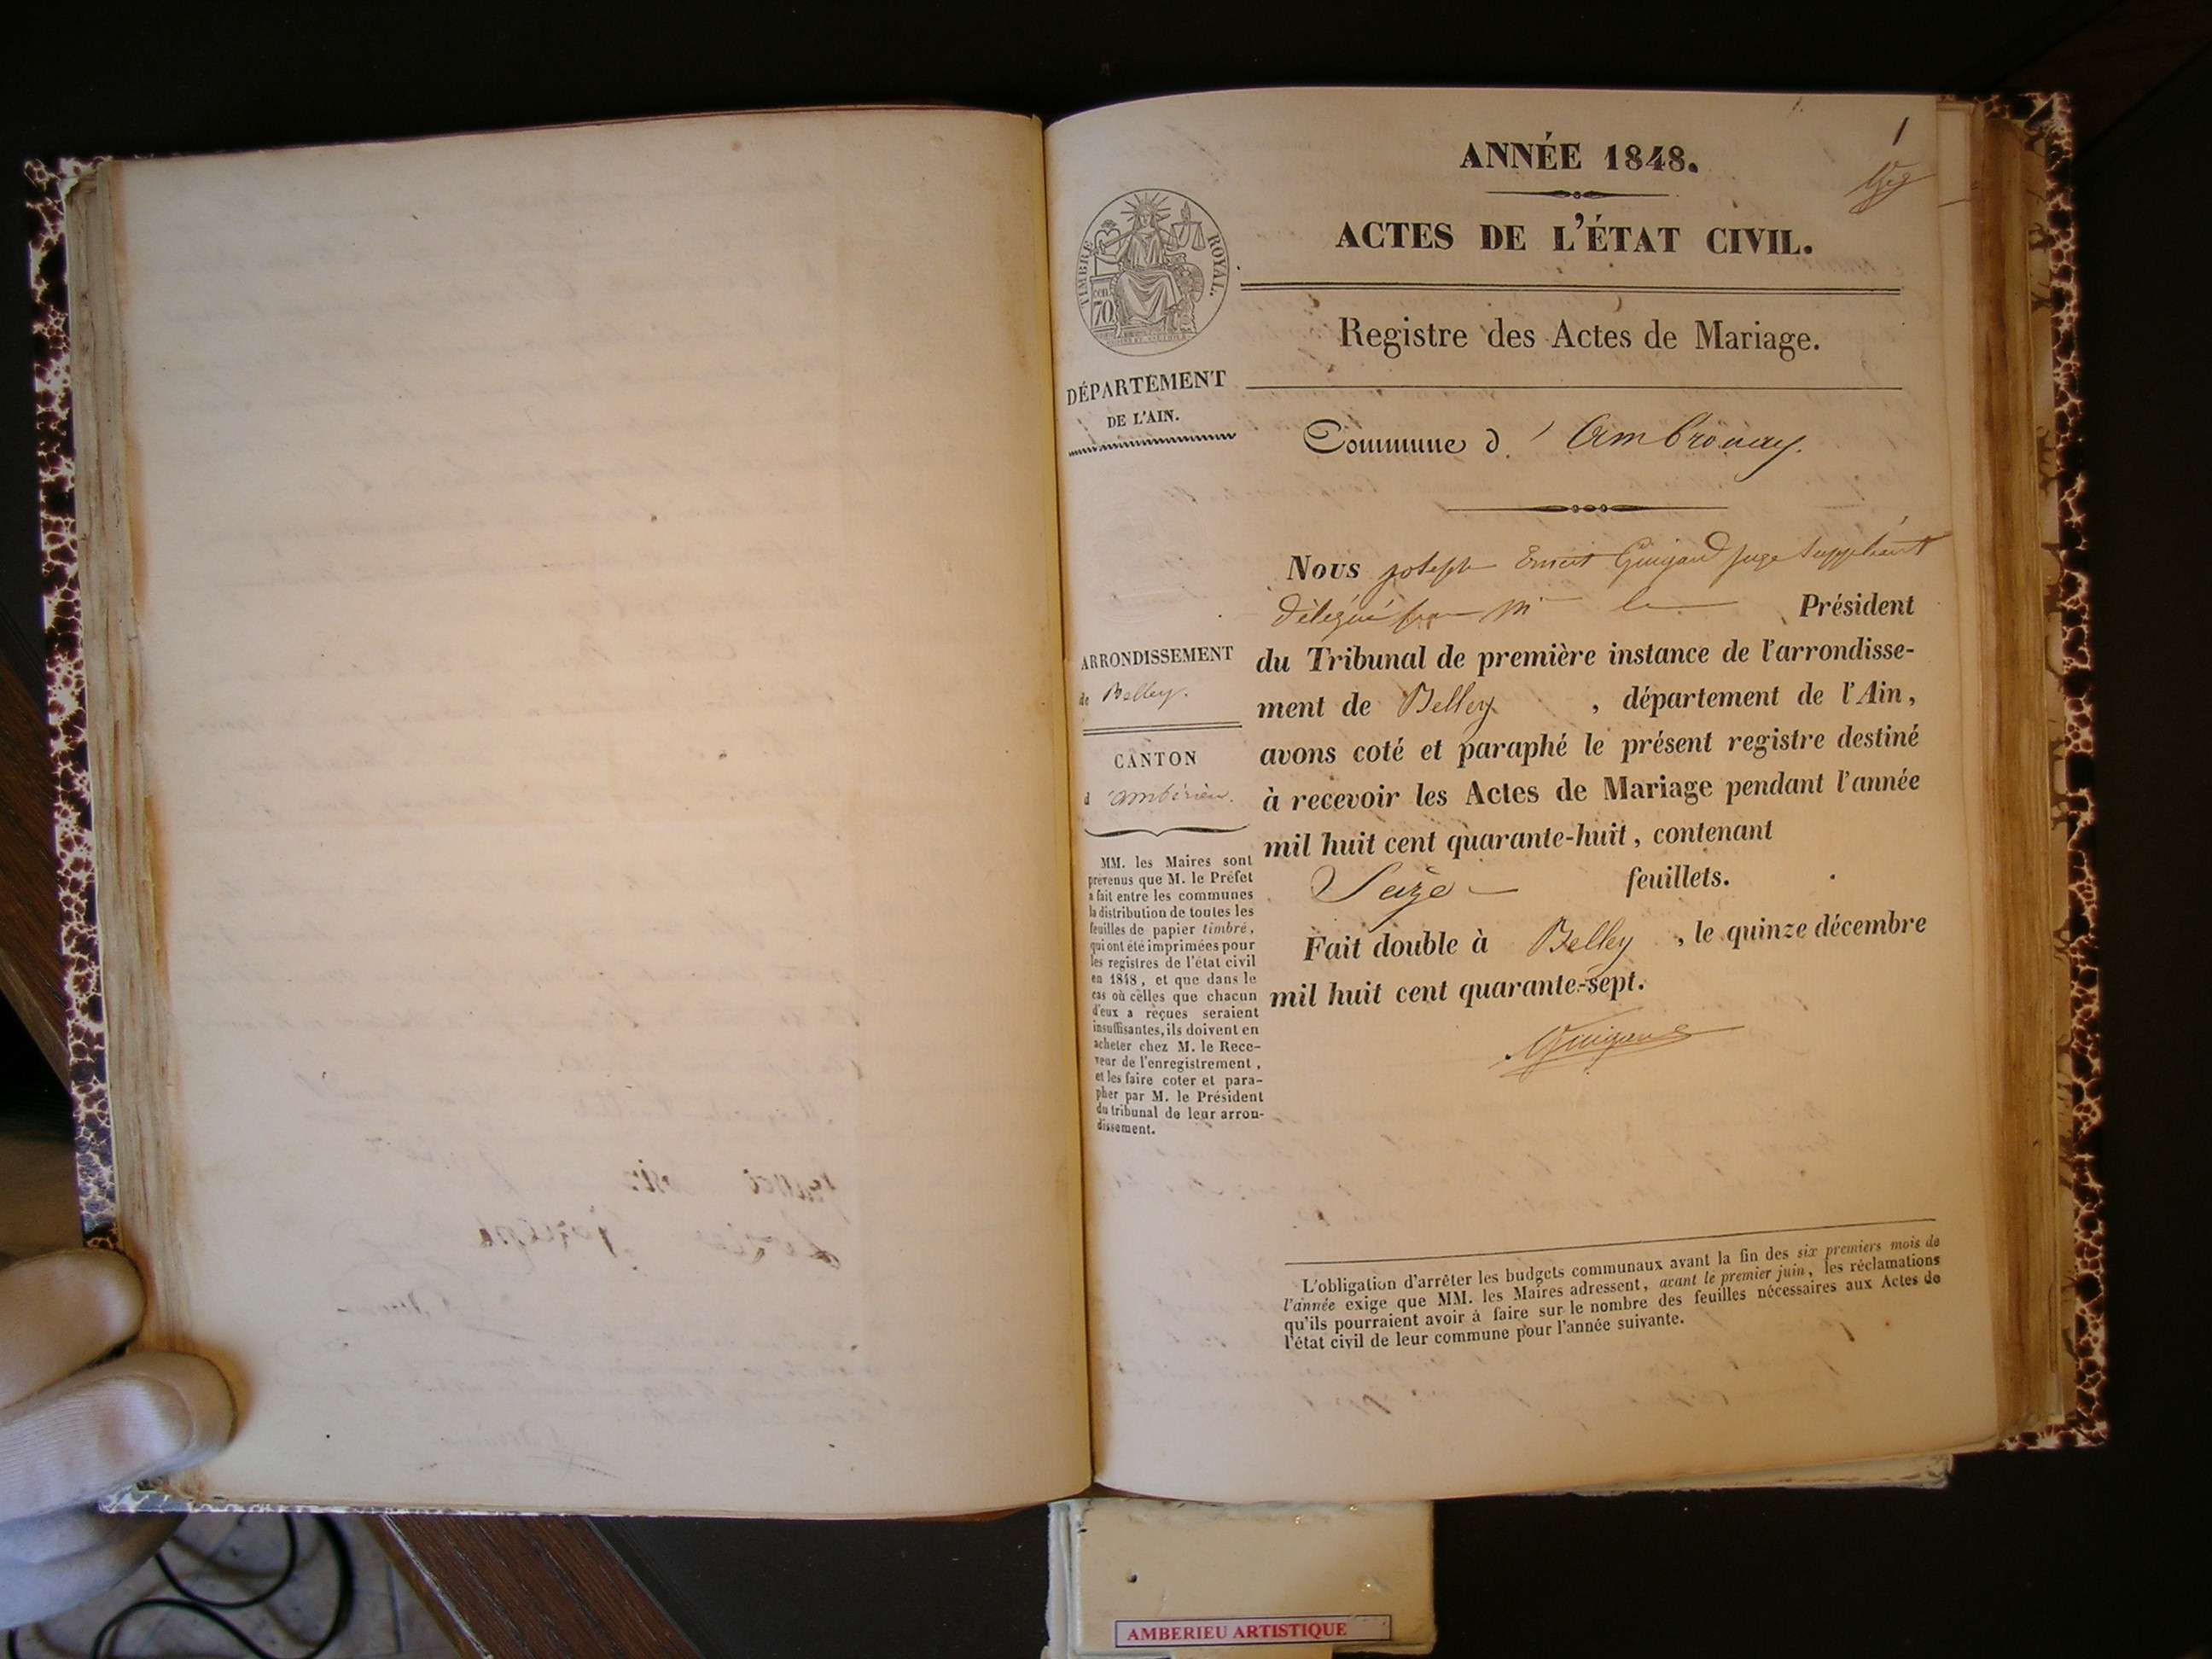 1
ANNÉE 1848.
ACTES DE L'ÉTAT CIVIL.
TIMBRE ROYAL.
cen. 70
Registre des Actes de Mariage.
DÉPARTEMENT
DE L'AIN.
Commune d' Ambronay.
Nous joseph Ernest Guigard juge Suppléant
délégué par Mr le Président
du Tribunal de première instance de l'arrondisse-
ment de Belley, département de l'Ain,
avons coté et paraphé le présent registre destiné
à recevoir les Actes de Mariage pendant l'année
mil huit cent quarante-huit, contenant
Seize feuillets.
Fait double à Belley, le quinze décembre
mil huit cent quarante-sept.
ARRONDISSEMENT
de Belley.
CANTON
d'ambérieu.
MM. les Maires sont
prévenus que M. le Préfet
a fait entre les communes
la distribution de toutes les
feuilles de papier timbré,
qui ont été imprimées pour
les registres de l'état civil
en 1848, et que dans le
cas où celles que chacun
d'eux a reçues seraient
insuffisantes, ils doivent en
acheter chez M. le Rece-
veur de l'enregistrement,
et les faire coter et para-
pher par M. le Président
du tribunal de leur arron-
dissement.
L'obligation d'arrêter les budgets communaux avant la fin des six premiers mois de
l'année exige que MM. les Maires adressent, avant le premier juin, les réclamations
qu'ils pourraient avoir à faire sur le nombre des feuilles nécessaires aux Actes de
l'état civil de leur commune pour l'année suivante.
AMBERIEU ARTISTIQUE